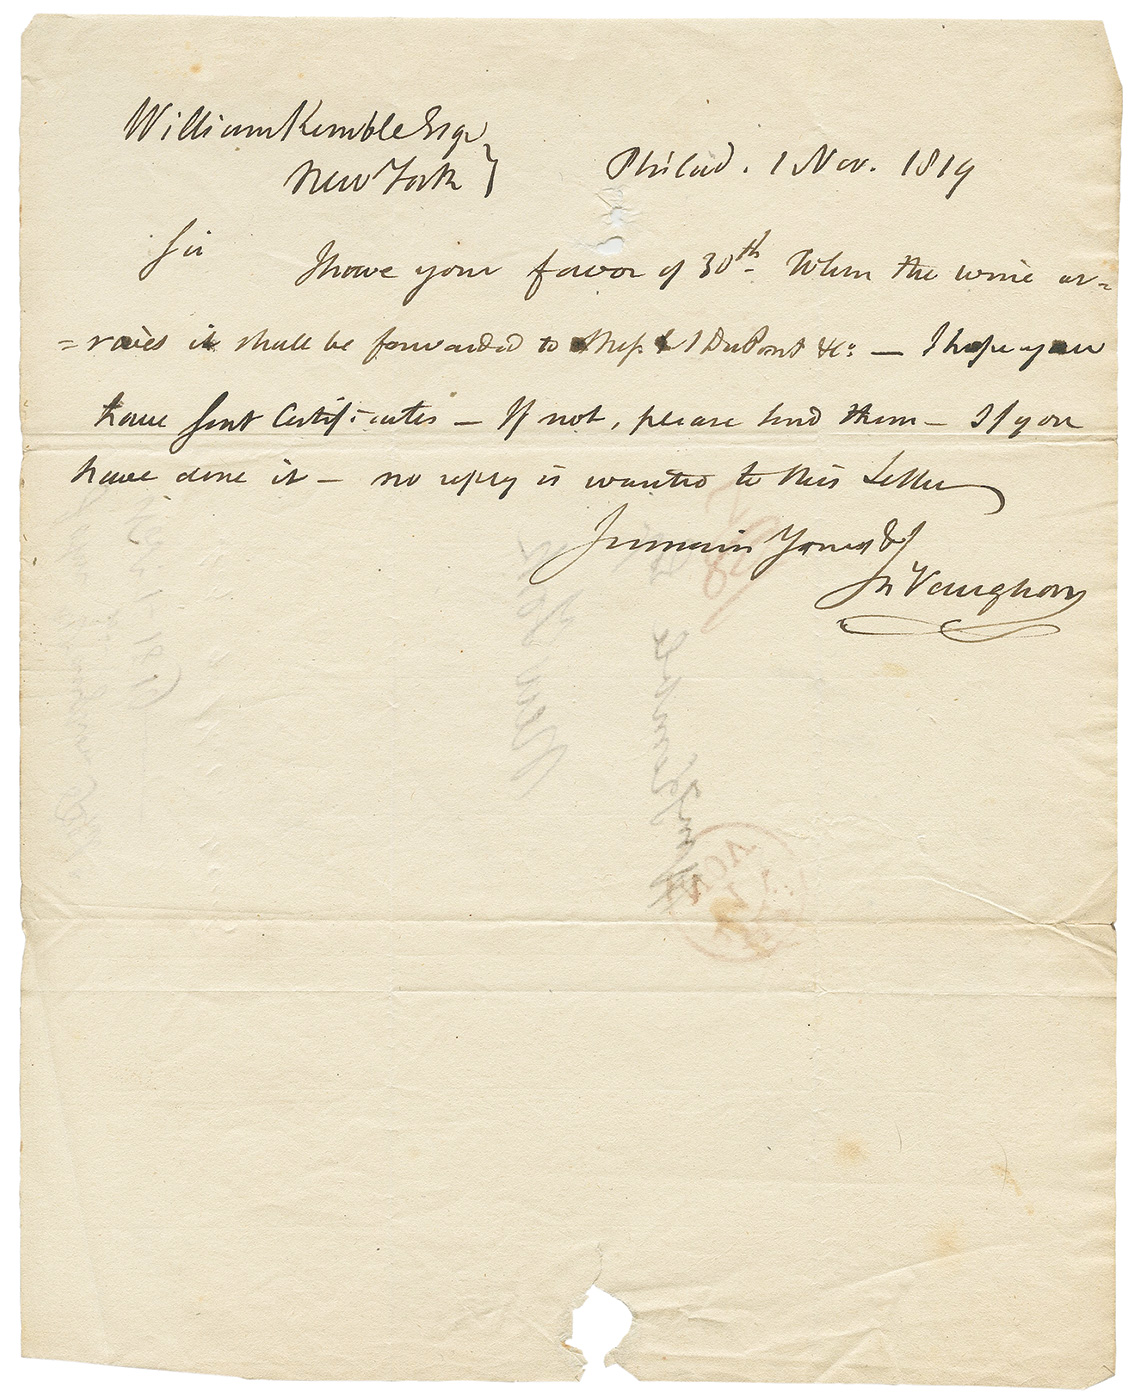 William Kemble Esqr
New York }
Philad. 1 Nov. 1819
Sir I have your favor of 30th- When the wine ar=
=raies it shall be forwarded to Mess. & I DuPont &c: — I hope you
have sent Certificates — If not, please send them — If you
have done it — no reply is wanted to this Letter
I remain Yours &c
Jn Vaughan